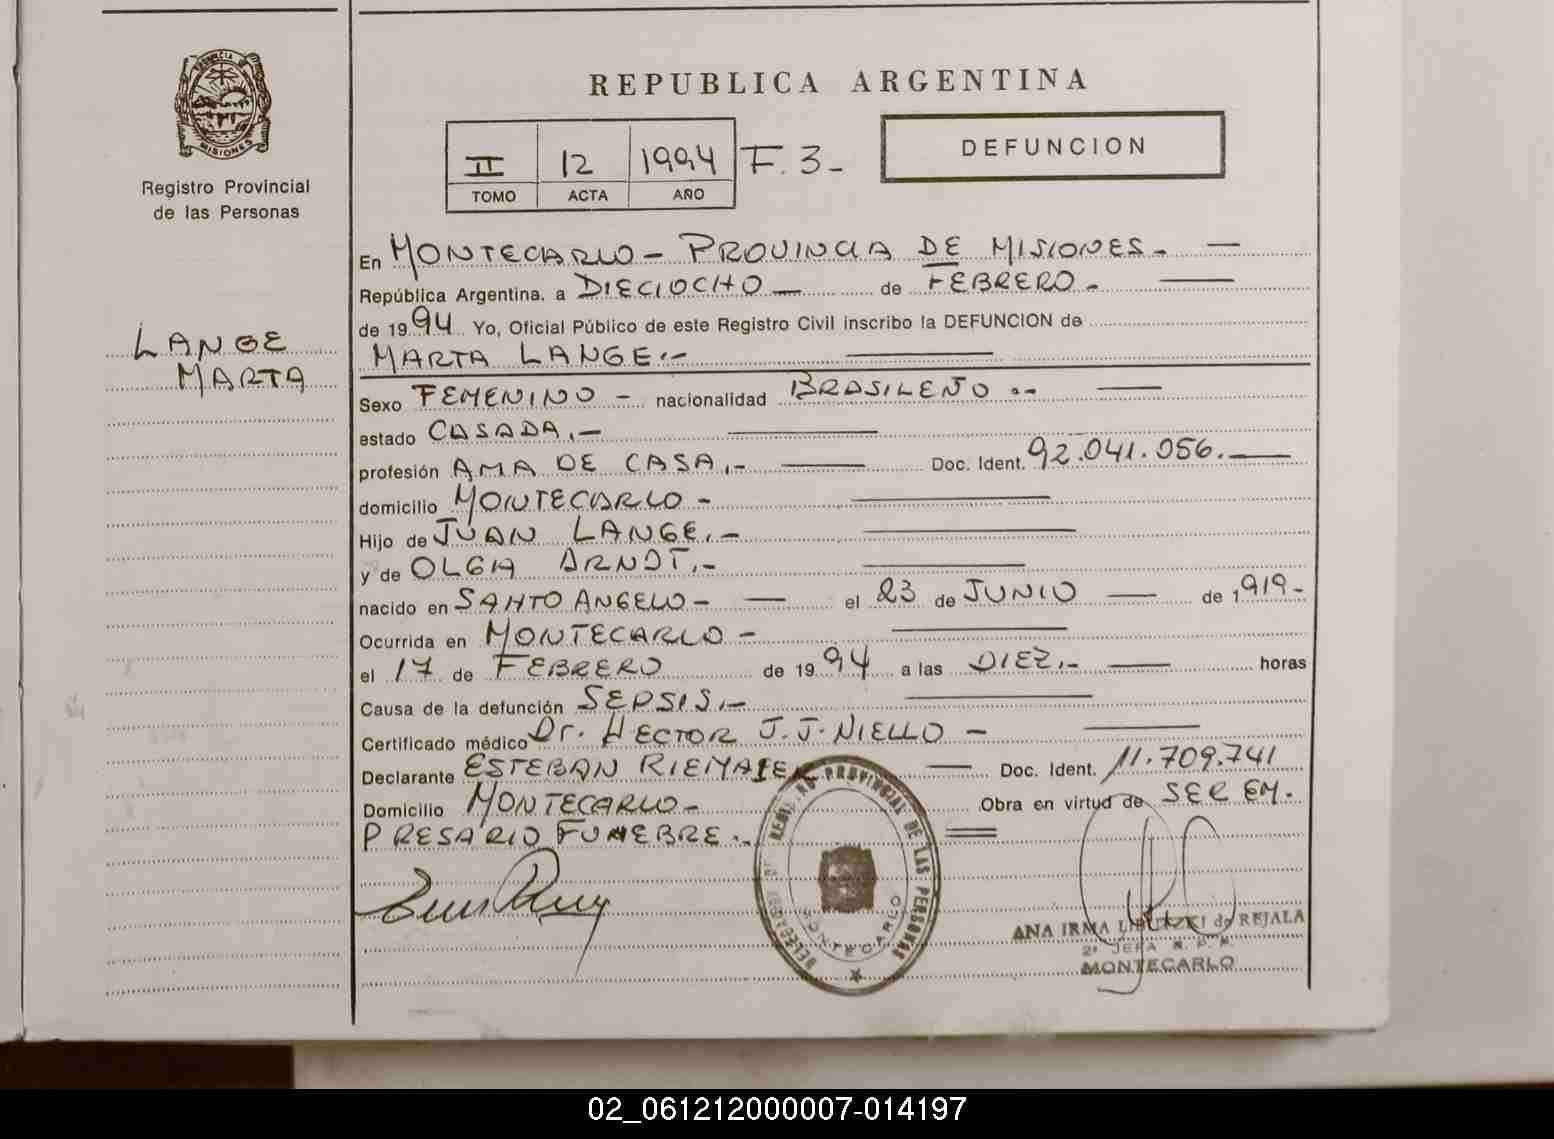 PROVINCIA DE
MISIONES
Registro Provincial
de las Personas
LANGE
MARTA
REPUBLICA ARGENTINA
II 12 1994 F. 3-
TOMO ACTA AÑO
DEFUNCION
En MONTECARLO - PROVINCIA DE MISIONES. -
República Argentina. a DIECIOCHO - de FEBRERO. -
de 1994 Yo, Oficial Público de este Registro Civil inscribo la DEFUNCION de
MARTA LANGE.-
Sexo FEMENINO - nacionalidad BRASILEÑO .-
estado CASADA.-
profesión AMA DE CASA.- Doc. Ident. 92.041.056.-
domicilio MONTECARLO -
Hijo de JUAN LANGE.-
y de OLGA ARNDT.-
nacido en SANTO ANGELO - el 23 de JUNIO de 1919-
Ocurrida en MONTECARLO -
el 17 de FEBRERO de 1994 a las DIEZ.- horas
Causa de la defunción SEPSIS.-
Certificado médico Dr. HECTOR J.J. NIELLO -
Declarante ESTEBAN RIEMAIER Doc. Ident. 11.709.741
Domicilio MONTECARLO - Obra en virtud de SER EM-
PRESARIO FUNEBRE.-
REGISTRO PROVINCIAL DE LAS PERSONAS
MONTECARLO
ANA IRMA de REJALA
2ª JEFA R. P. P.
MONTECARLO
02_061212000007-014197